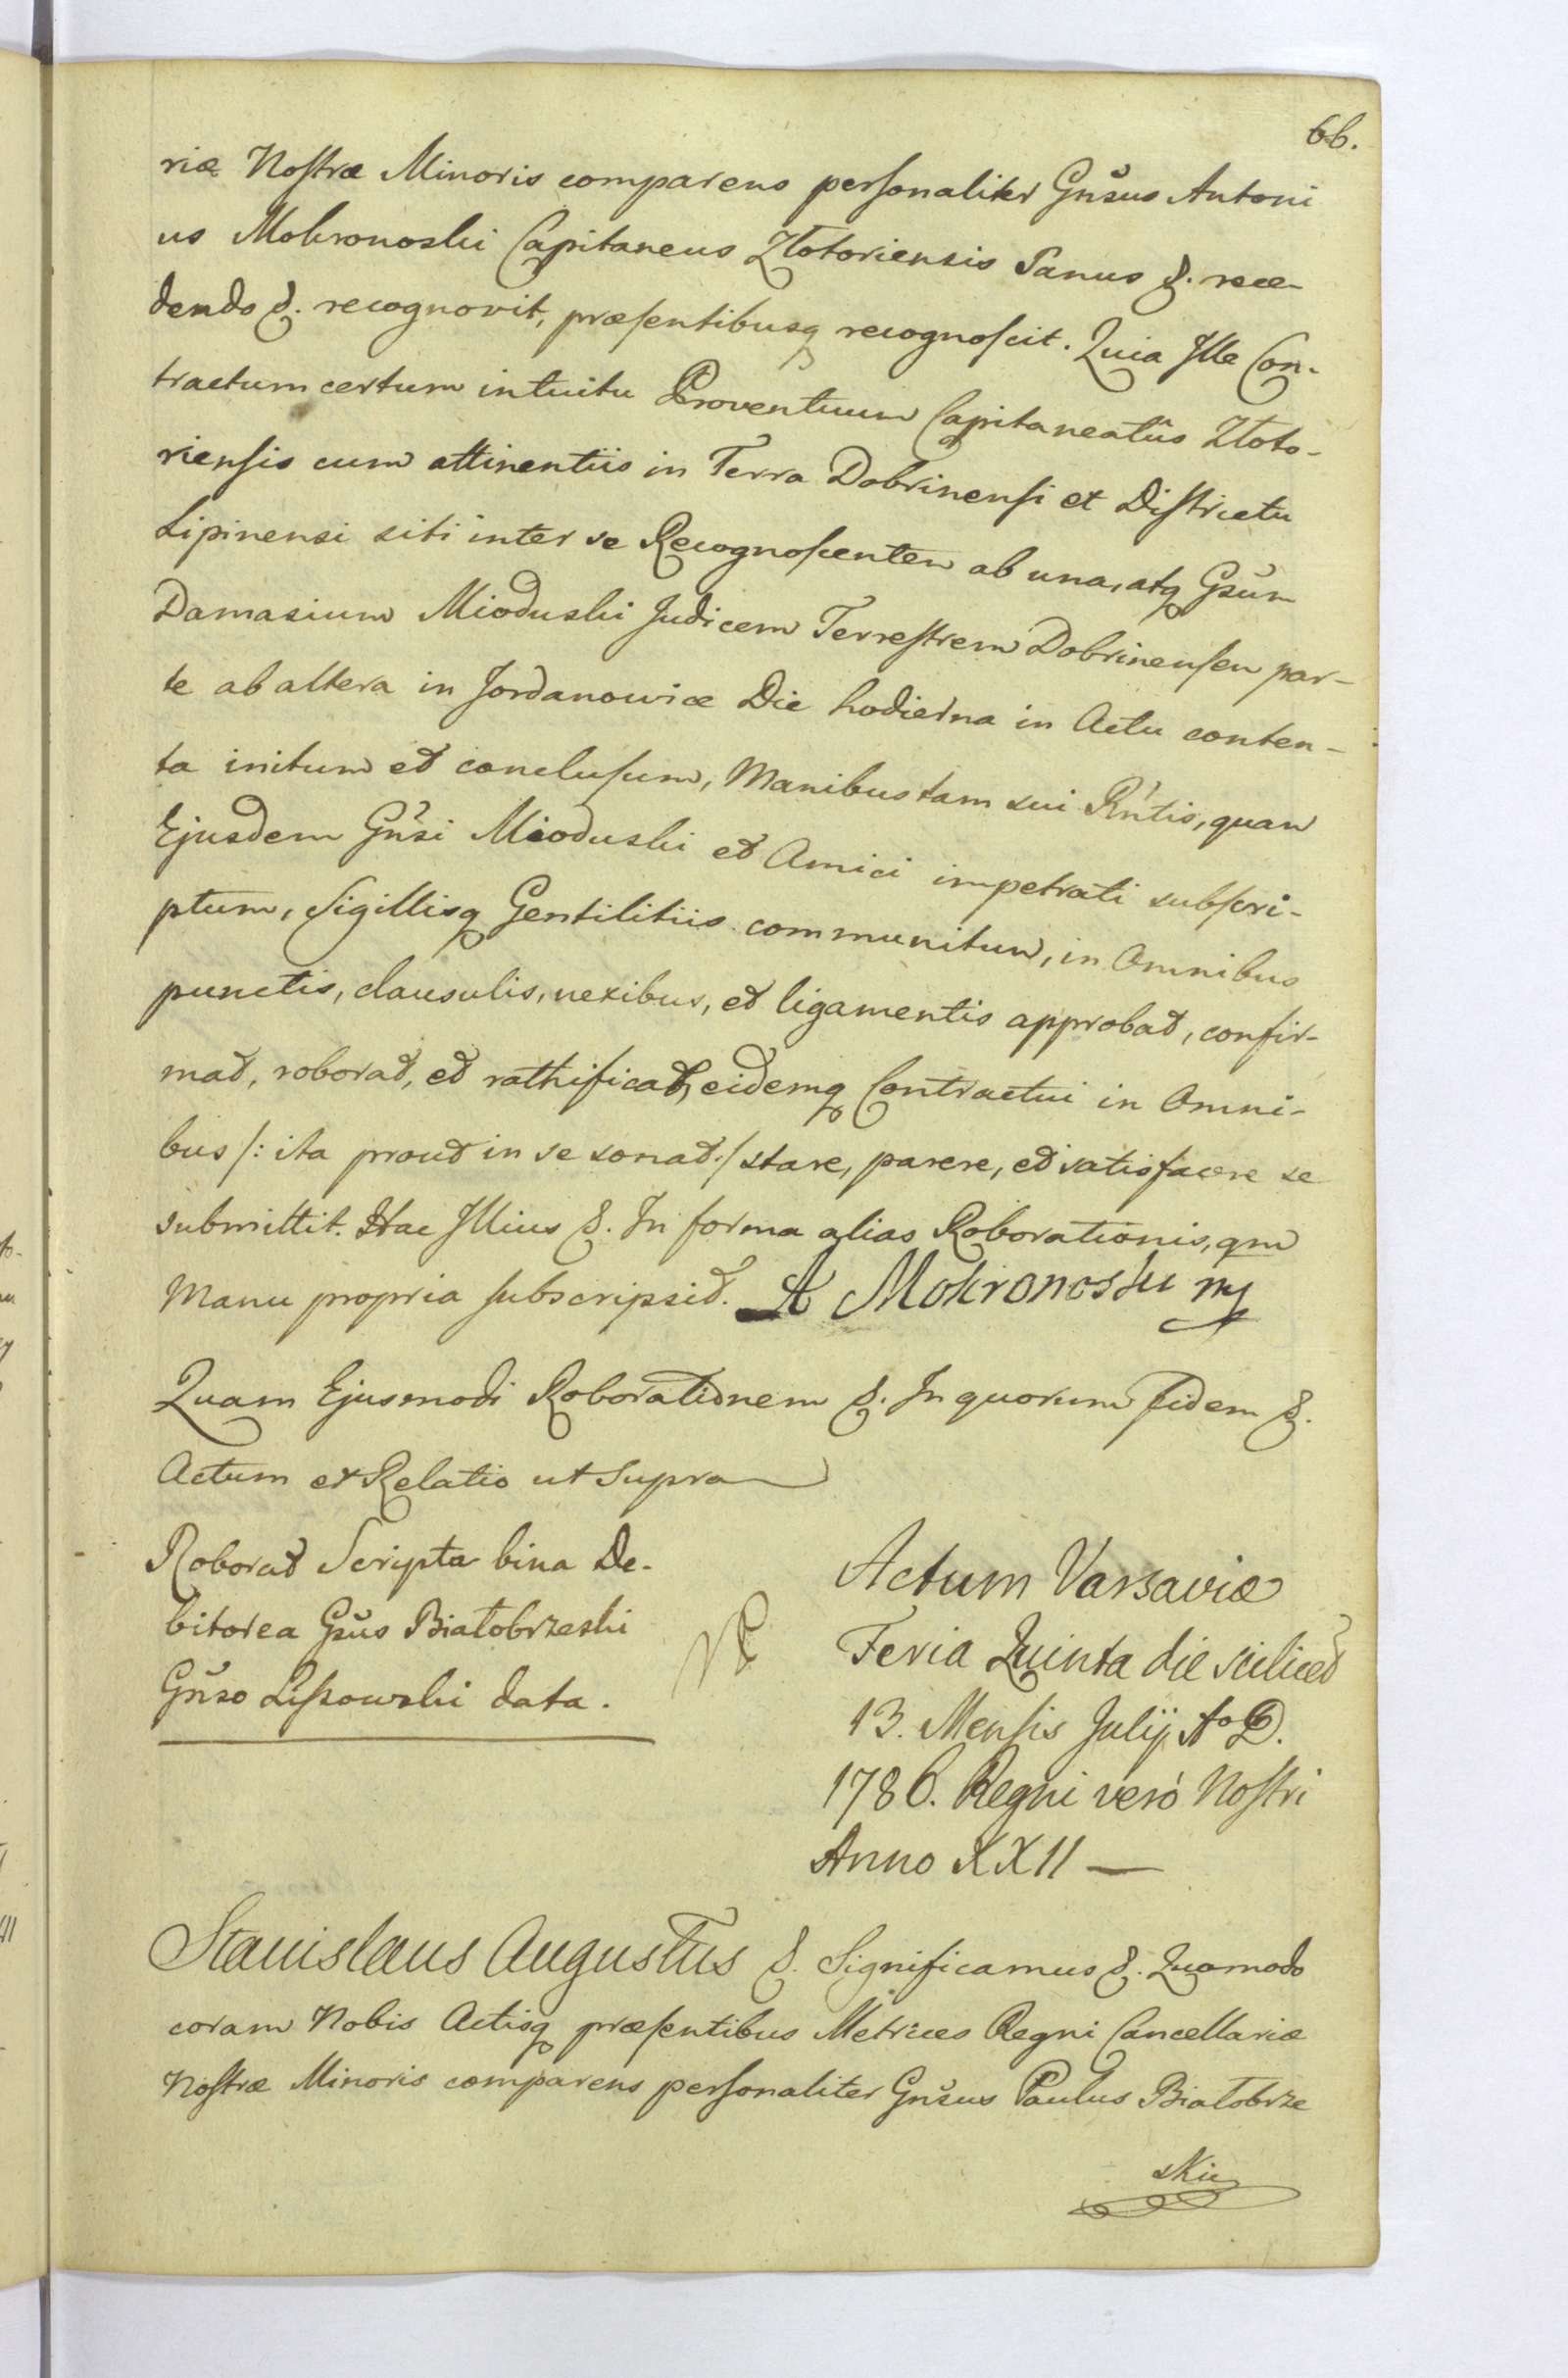 66.
riæ Nostræ Minoris comparens personaliter Gnsus Antoni
us Mokronoski Capitaneus Złotoriensis Sanus &. rece-
dendo &. recognovit, præsentibusq recognoscit. Quia Ille Con-
tractum certum intuitu Proventuum Capitaneatûs Złoto-
riensis cum attinentiis in Terra Dobrinensi et Districtu
Lipinensi siti inter se Recognoscentem ab una, atq Gsum
Damasium Mioduski Judicem Terrestrem Dobrinensem par-
te ab altera in Jordanowice Die hodierna in Actu conten-
ta initum et conclusum, Manibus tam sui Rntis, quam
Ejusdem Gnsi Mioduski et Amici impetrati subscri-
ptum, Sigillisq Gentilitiis communitum, in Omnibus
punctis, clausulis, nexibus, et ligamentis approbat, confir-
mat, roborat, et rathificat, eidemq Contractui in Omni-
bus /: ita prout in se sonat :/ stare, parere, et satisfacere se
submittit. Hac Illius &. In forma alias Roborationis, qm
Manu propria subscripsit. A Mokronoski mp
Quam Ejusmodi Roborationem &. In quorum fidem &.
Actum et Relatio ut Supra
Roborat Scripta bina De-
bitorea Gsus Białobrzeski
Gnso Lissowski data.
Actum Varsaviæ
Feria Quinta die scilicet
13. Mensis Julij Ao D.
1786. Regni verò Nostri
Anno XXII —
Stanislaus Augustus &. Significamus &. Quomodo
coram Nobis Actisq præsentibus Metrices Regni Cancellariæ
Nostræ Minoris comparens personaliter Gnsus Paulus Białobrze
ski